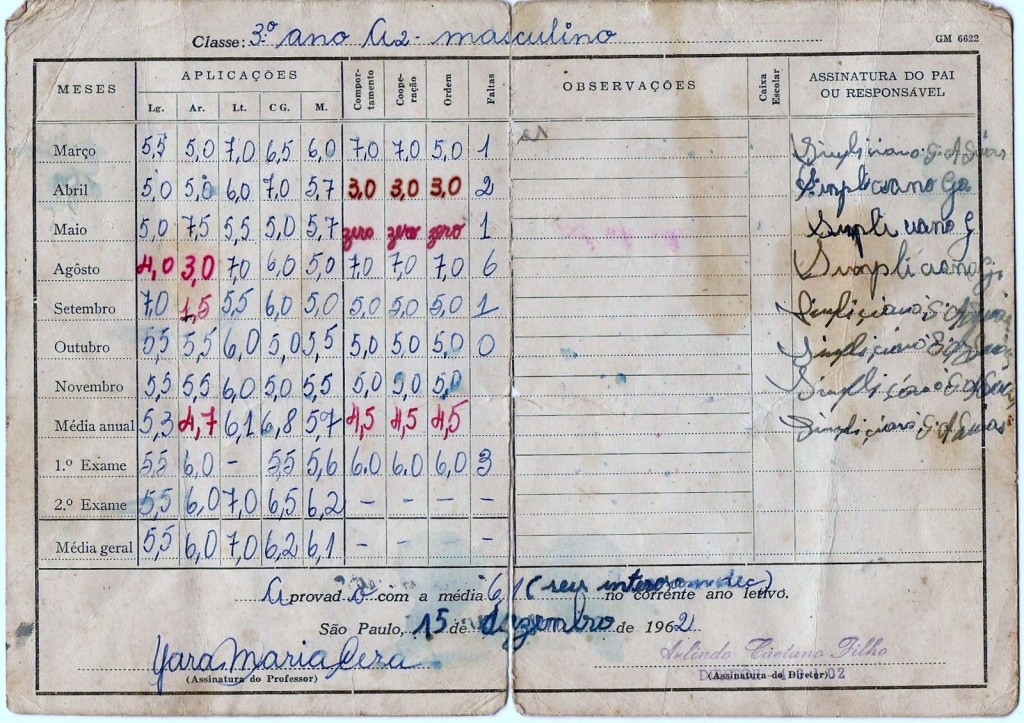 Classe: 3.º ano A2 - masculino GM 6622
MESES APLICAÇÕES Compor-tamento Coope-ração Ordem Faltas OBSERVAÇÕES Caixa Escolar ASSINATURA DO PAI OU RESPONSÁVEL
Lg. Ar. Lt. C G. M.
Março 5,5 5,0 7,0 6,5 6,0 7,0 7,0 5,0 1 Simpliciano G.
Abril 5,0 5,0 6,0 7,0 5,7 3,0 3,0 3,0 2 Simpliciano
Maio 5,0 7,5 5,5 5,0 5,7 zero zero zero 1 Simpliciano G
Agôsto 4,0 3,0 7,0 6,0 5,0 7,0 7,0 7,0 6 Simpliciano G.
Setembro 7,0 1,5 5,5 6,0 5,0 5,0 5,0 5,0 1 Simpliciano G.
Outubro 5,5 5,5 6,0 5,0 5,5 5,0 5,0 5,0 0 Simpliciano G.
Novembro 5,5 5,5 6,0 5,0 5,5 5,0 5,0 5,0 Simpliciano G.
Média anual 5,3 4,7 6,1 6,8 5,7 4,5 4,5 4,5 Simpliciano G.
1.º Exame 5,5 6,0 - 5,5 5,6 6.0 6.0 6,0 3
2.º Exame 5,5 6,0 7,0 6,5 6,2 - - - -
Média geral 5,5 6,0 7,0 6,2 6,1 - - -
Aprovado com a média 6,1 (seis inteiros um dec) no corrente ano letivo.
São Paulo, 15 de dezembro de 1962
Yara Maria Cera Arlindo Caetano Filho
(Assinatura do Professor) (Assinatura do Diretor)